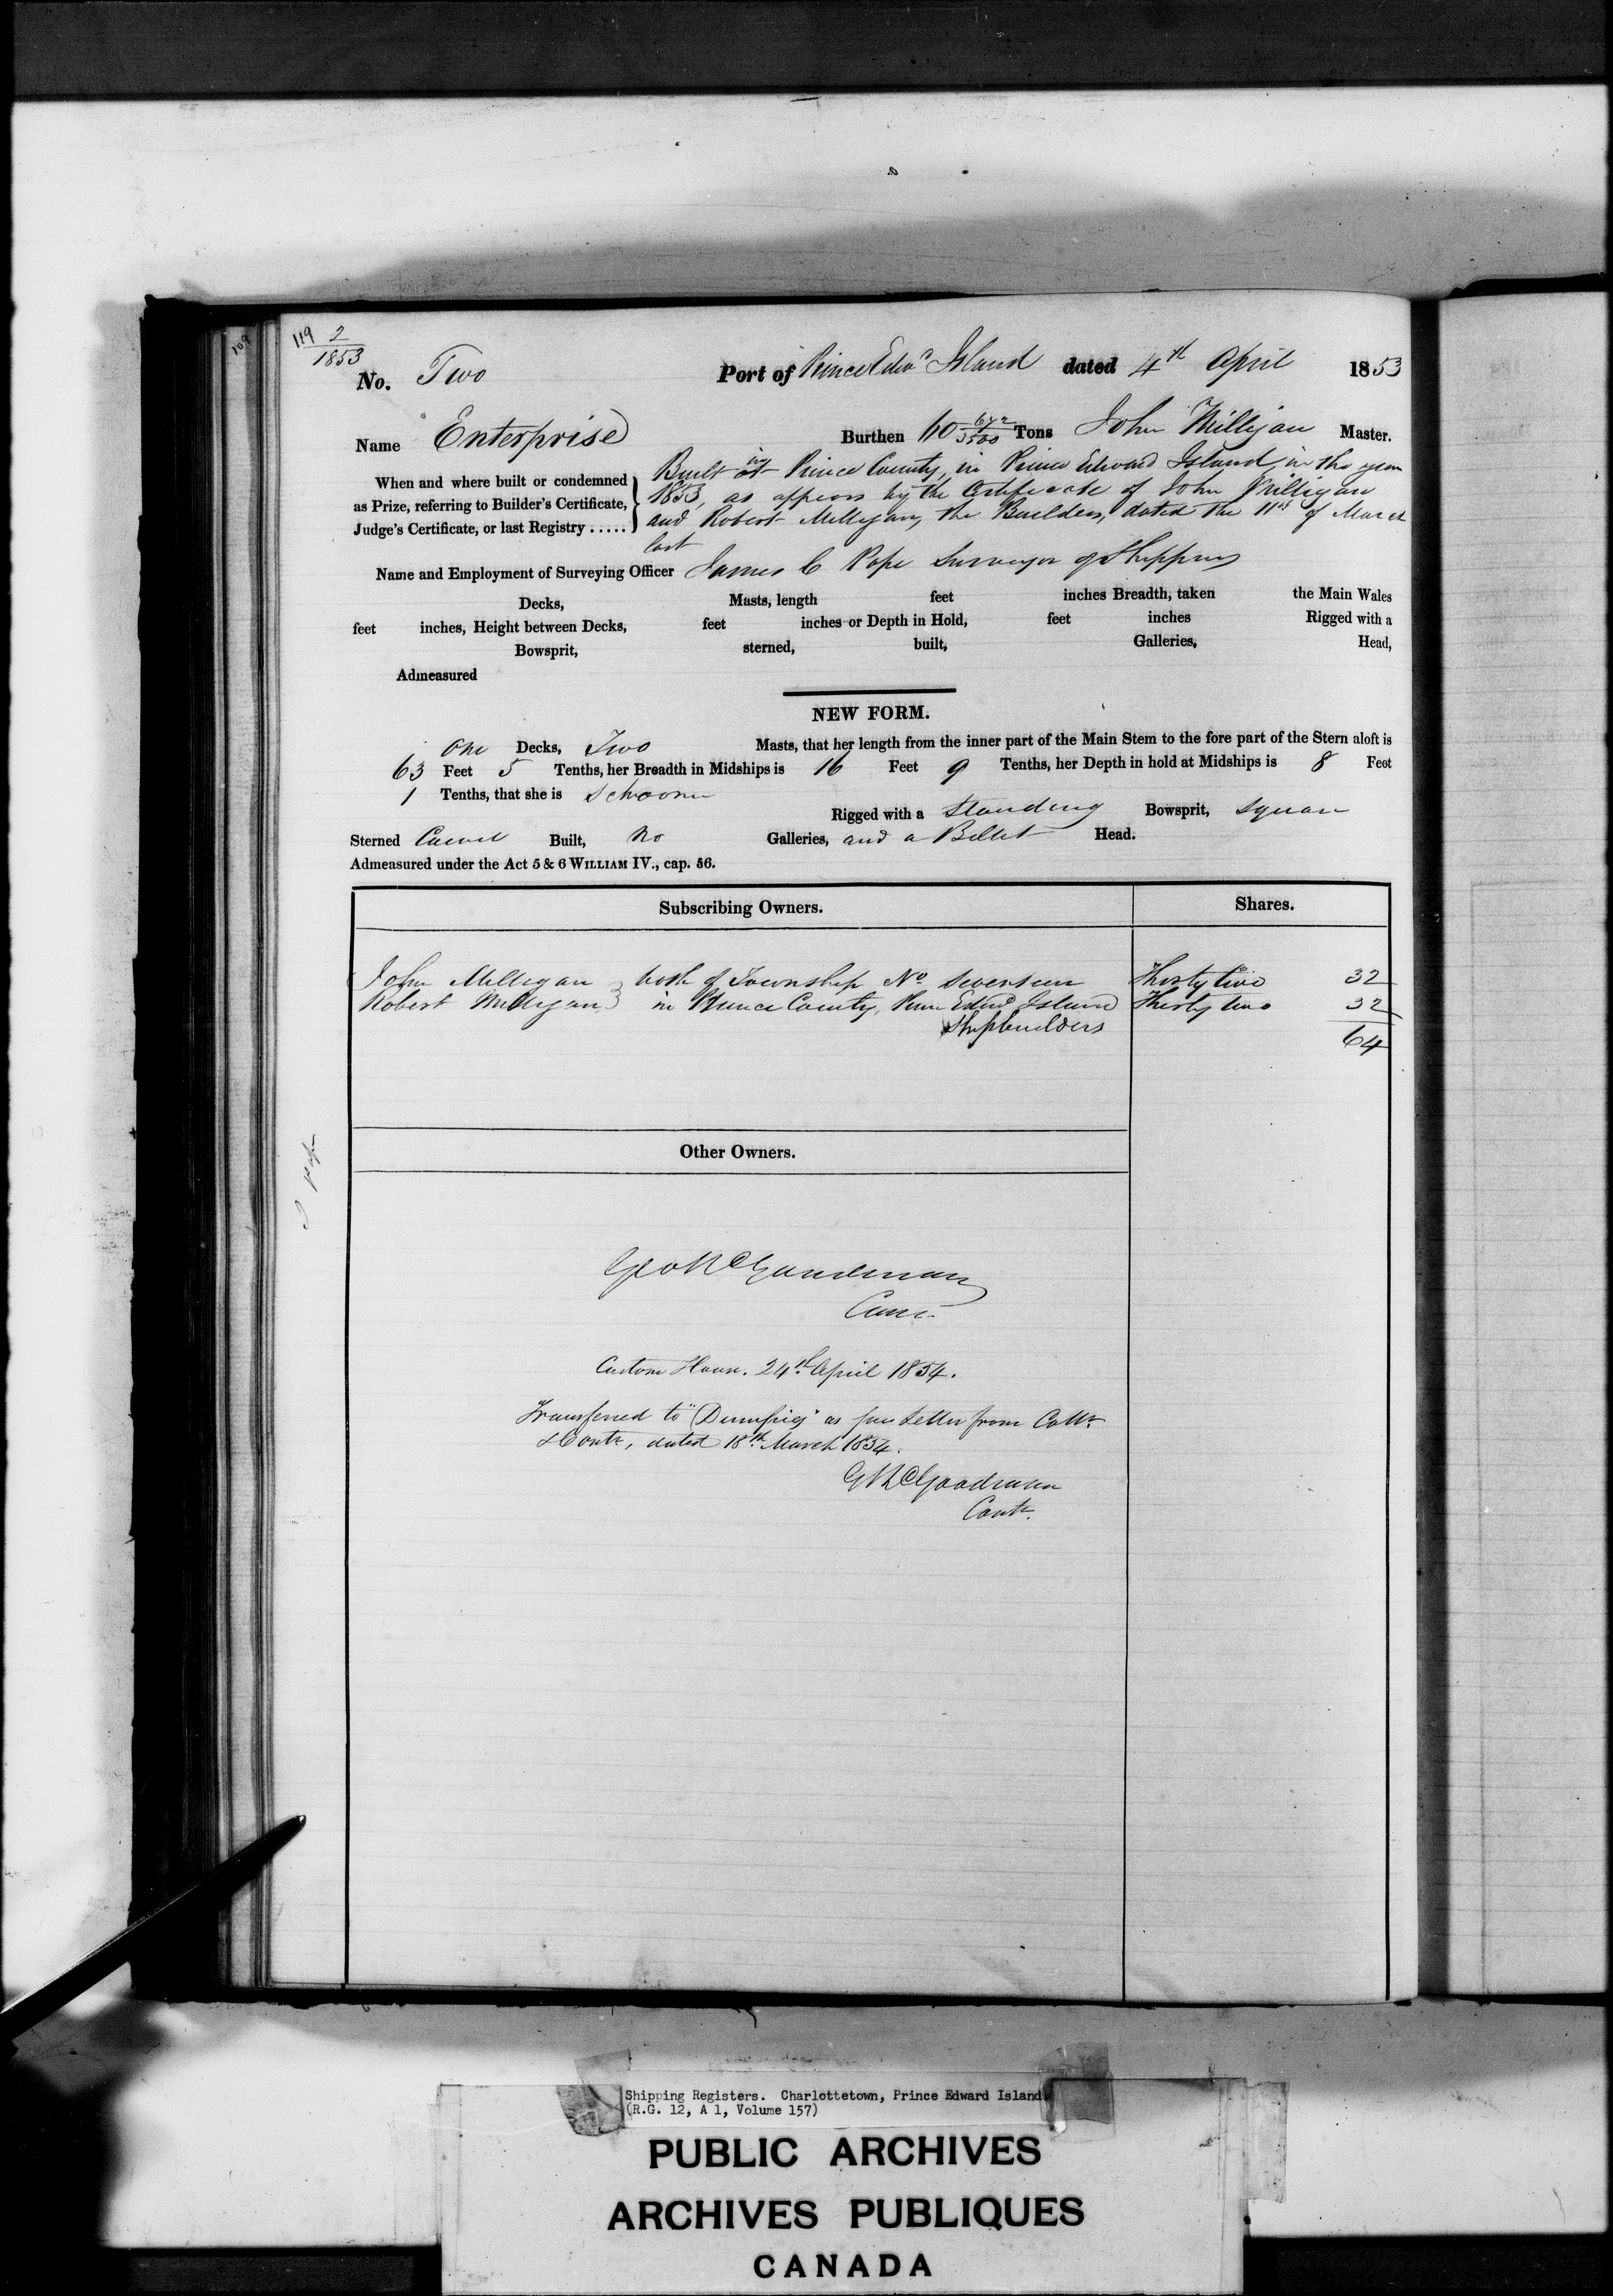 109
119 2
1853
No. Two Port of Prince Edwd Island dated 4th April 1853
Name "Enterprise Burthen 60 672/3500 Tons John Milligan Master.
When and where built or condemned as Prize, referring to Builder's Certificate, Judge's Certificate, or last Registry .....
Built at in Prince County, in Prince Edward Island, in the year
1853, as appears by the Certificate of John Milligan
and Robert Milligan, the Builders, dated the 11th of March
last
Name and Employment of Surveying Officer James C Pope Surveyor of Shipping
Decks, Masts, length feet inches Breadth, taken the Main Wales
feet inches, Height between Decks, feet inches or Depth in Hold, feet inches Rigged with a
Bowsprit, sterned, built, Galleries, Head,
Admeasured
NEW FORM.
One Decks, Two Masts, that her length from the inner part of the Main Stem to the fore part of the Stern aloft is
63 Feet 5 Tenths, her Breadth in Midships is 16 Feet 9 Tenths, her Depth in hold at Midships is 8 Feet
1 Tenths, that she is Schooner
Rigged with a Standing Bowsprit, Square
Sterned Carvel Built, No Galleries, and a Billet Head.
Admeasured under the Act 5 & 6 WILLIAM IV., cap. 56.
Subscribing Owners. Shares.
John Milligan } both of Township No Seventeen Thirty two 32
Robert Milligan } in Prince County, Prince Edwd Island Thirty two 32
Shipbuilders
64
Other Owners.
Geo R C Goodman
Contr
Custom House. 24th April 1854.
Transferred to "Dumfries" as per Letter from Collr
& Contr, dated 18th March 1854.
G R C Goodman
Contr.
Shipping Registers. Charlottetown, Prince Edward Island
(R.G. 12, A 1, Volume 157)
PUBLIC ARCHIVES
ARCHIVES PUBLIQUES
CANADA